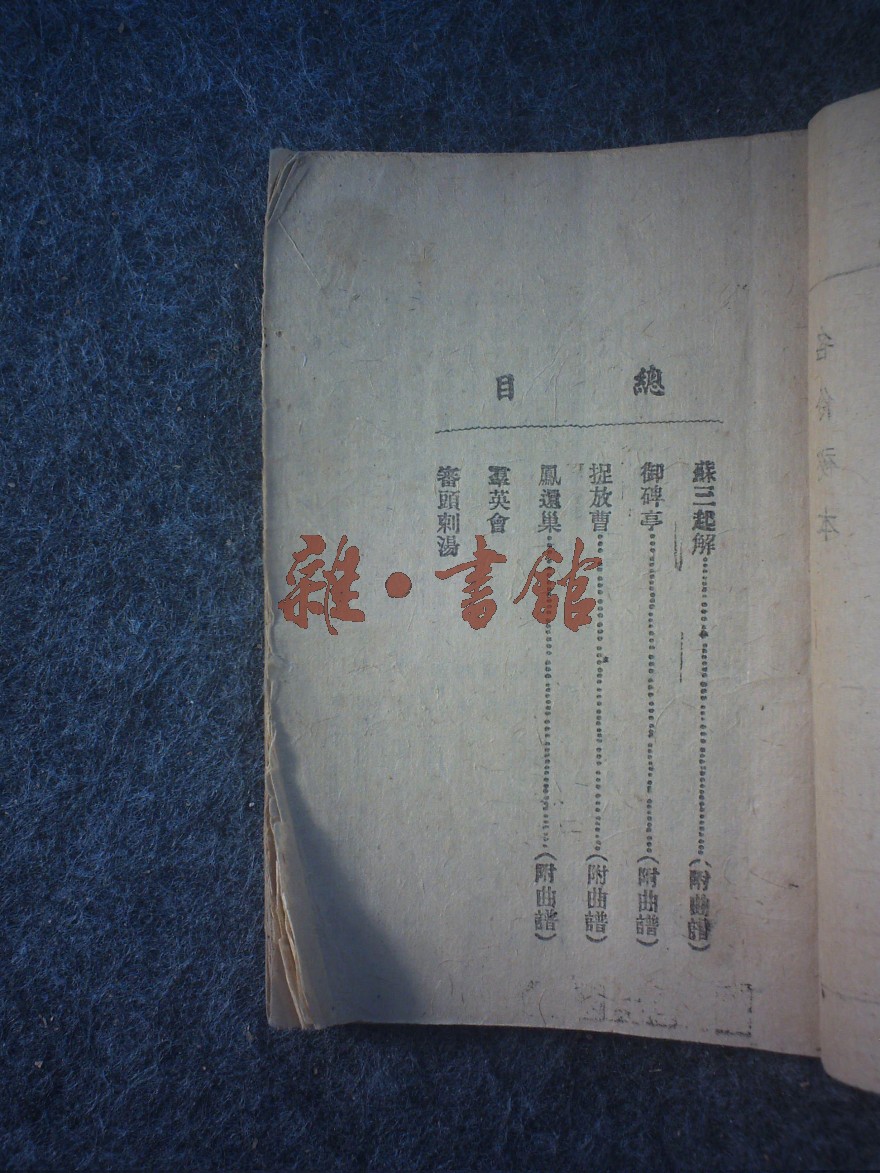 總目
蘇三起解……(附曲譜)
御碑亭……(附曲譜)
捉放曹……(附曲譜)
鳳還巢……(附曲譜)
羣英會
審頭刺湯
雜·書館